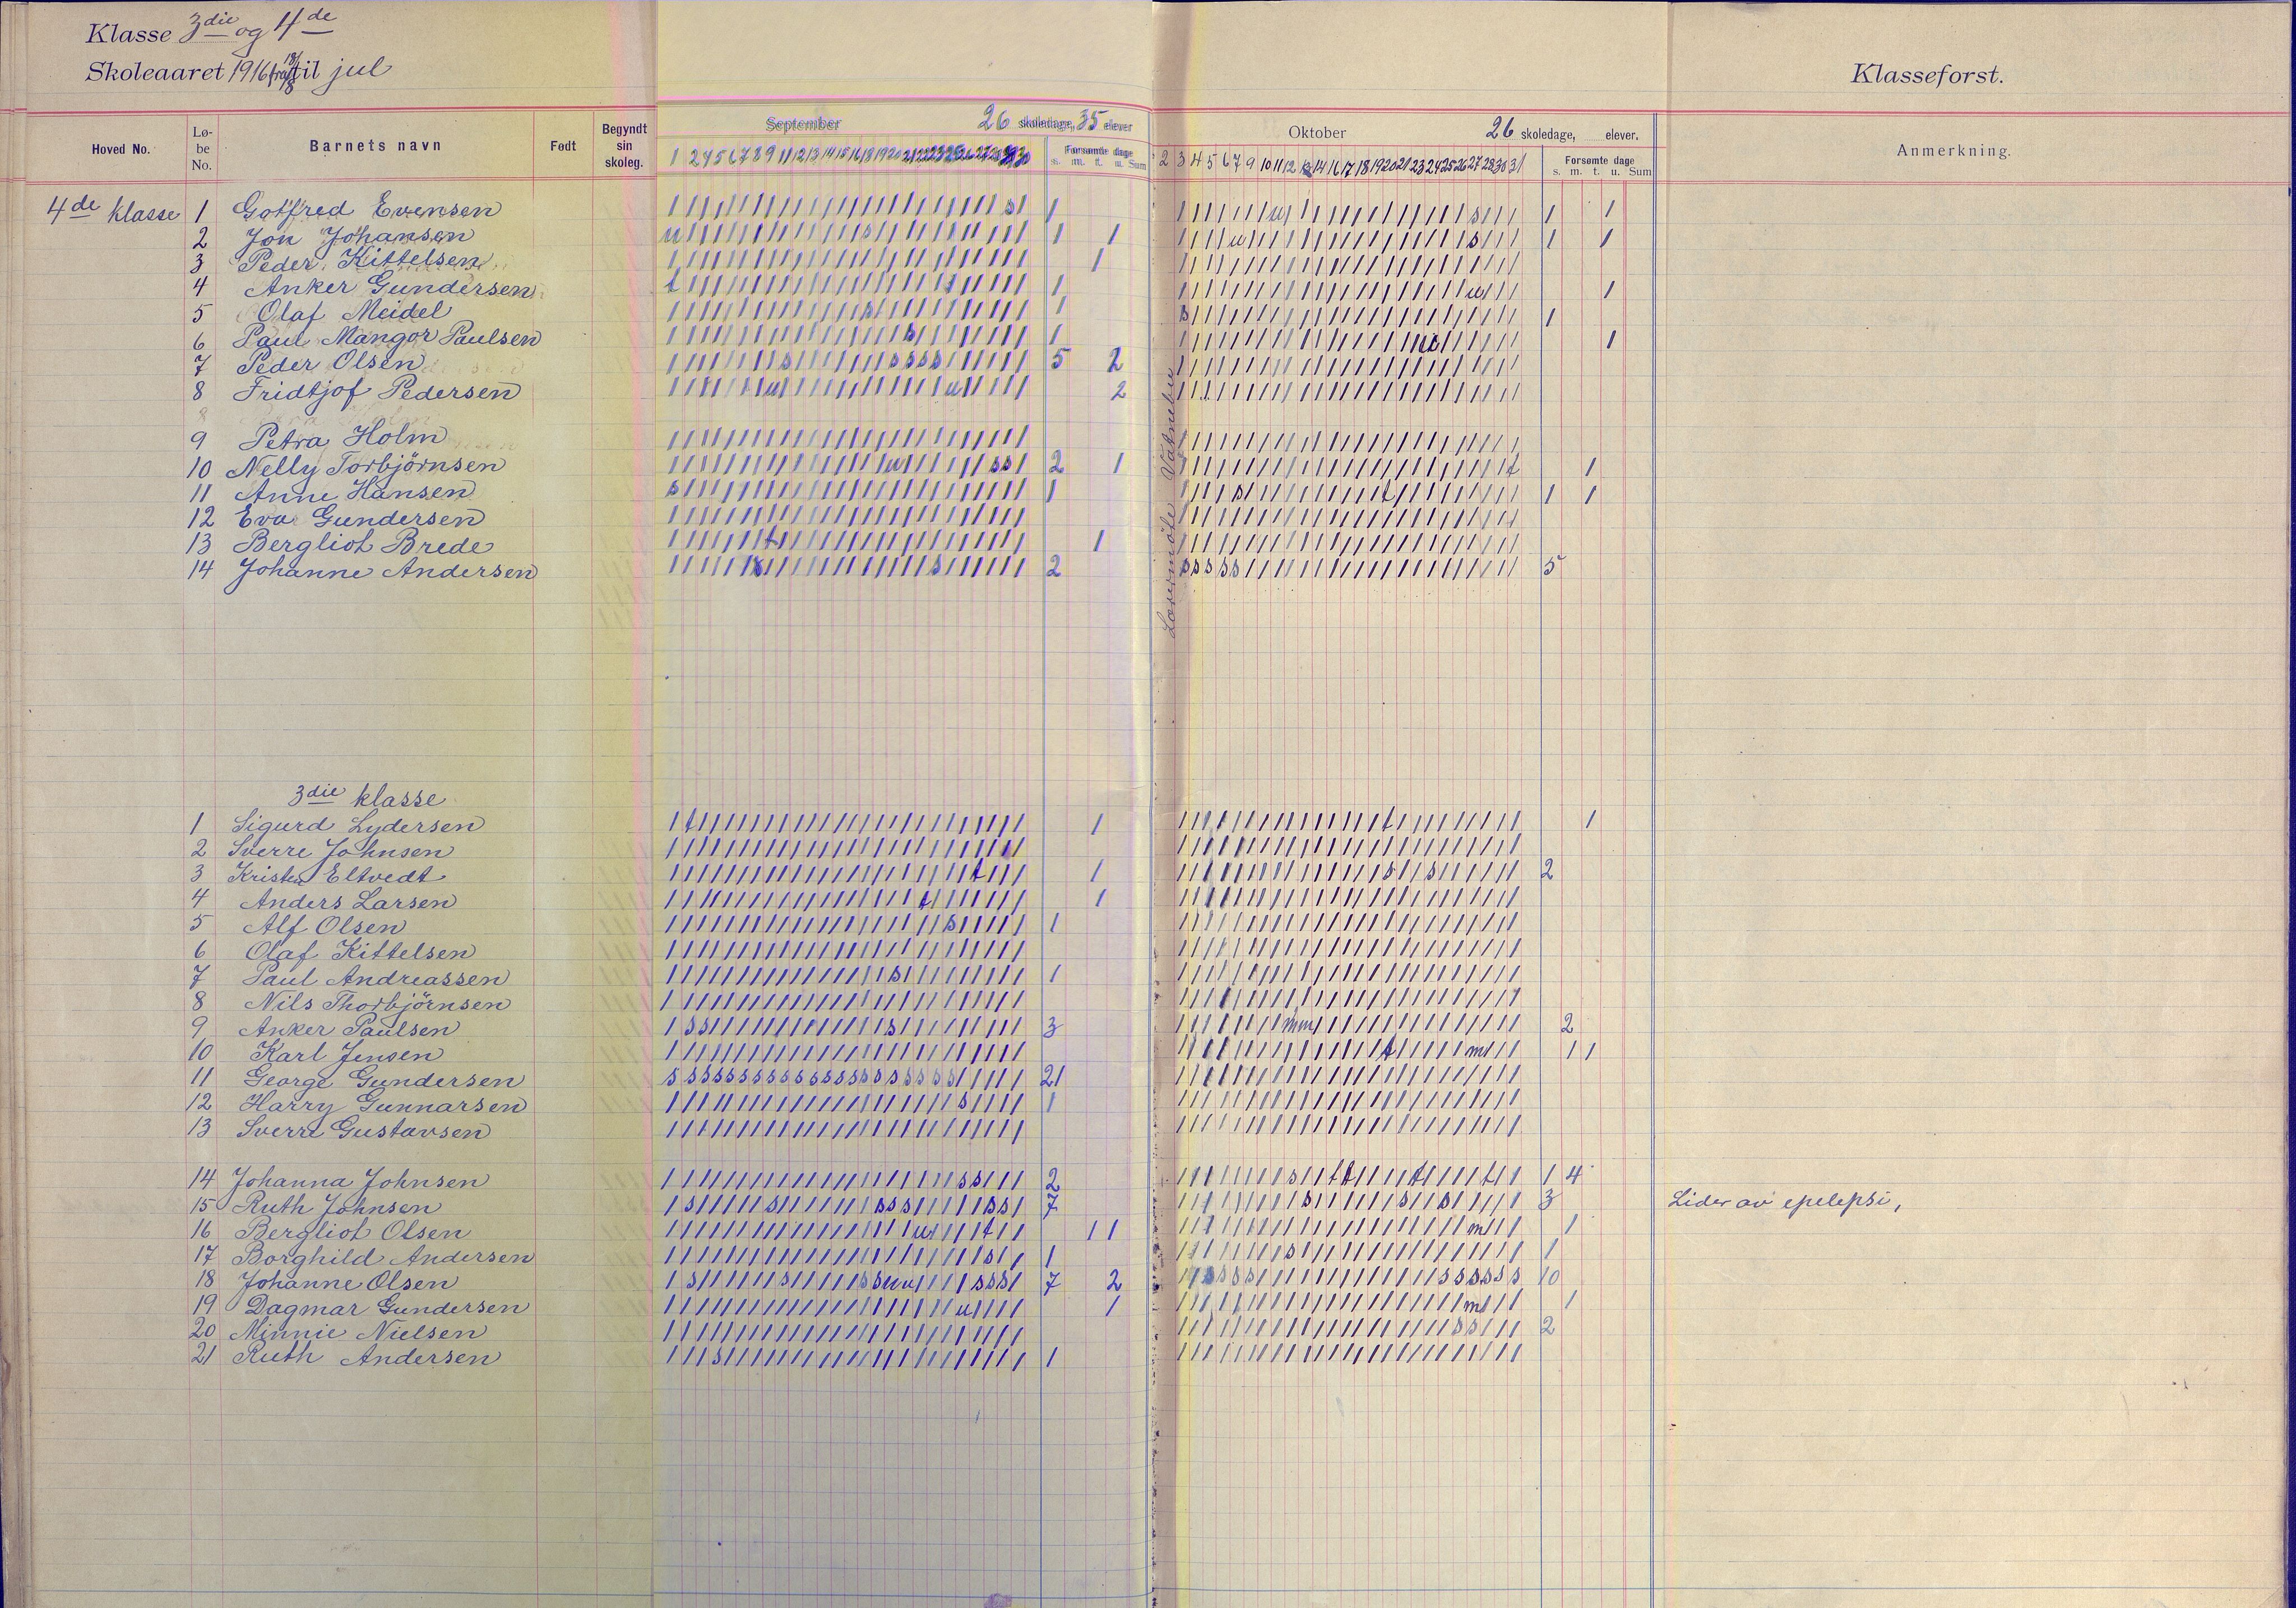 Klasse 3die og 4de
Skoleaaret 1916 fra 18/8 til jul
Klasseforst.
Hoved No.
Lø-
be
No.
Barnets navn
Født
Begyndt
sin
skoleg.
September 26 skoledage, 35 elever
Forsømte dage
s. m. t. u. Sum
Oktober 26 skoledage, elever.
Forsømte dage
s. m. t. u. Sum
Anmerkning.
Lærermøte Vatnebu
4de klasse 1 Gotfred Evensen 1 1 1
2 Jon Johansen 1 1 1 1
3 Peder Kittelsen 1
4 Anker Gundersen 1 1
5 Olaf Meidel 1 1
6 Paul Mangor Paulsen 1 1
7 Peder Olsen 5 2
8 Fridtjof Pedersen 2
9 Petra Holm
10 Nelly Torbjørnsen 2 1 1
11 Anne Hansen 1 1 1
12 Eva Gundersen
13 Bergliot Brede 1
14 Johanne Andersen 2 5
3die klasse
1 Sigurd Lydersen 1 1
2 Sverre Johnsen
3 Kristen Eltvedt 1 2
4 Anders Larsen 1
5 Alf Olsen 1
6 Olaf Kittelsen
7 Paul Andreassen 1
8 Nils Thorbjörnsen
9 Anker Paulsen 3 2
10 Karl Jensen 1 1
11 George Gundersen 21
12 Harry Gunnarsen 1
13 Sverre Gustavsen
14 Johanna Johnsen 2 1 4
15 Ruth Johnsen 7 3 Lider av epelepsi,
16 Bergliot Olsen 1 1 1
17 Borghild Andersen 1 1
18 Johanne Olsen 7 2 10
19 Dagmar Gundersen 1 1
20 Minnie Nielsen 2
21 Ruth Andersen 1